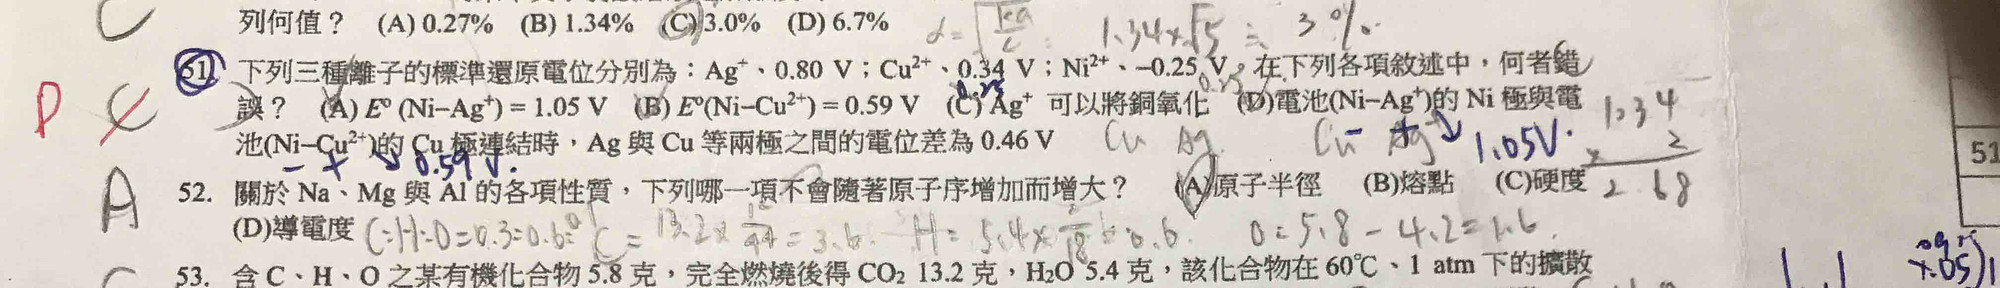 列何值？ (A) 0.27% (B) 1.34% (C) 3.0% (D) 6.7%
1.34×√5 ≒ 3%
51. 下列三種離子的標準還原電位分別為：Ag⁺、0.80 V；Cu²⁺、0.34 V；Ni²⁺、–0.25 V。在下列各項敘述中，何者錯
誤？ (A) E° (Ni–Ag⁺) = 1.05 V (B) E°(Ni–Cu²⁺) = 0.59 V (C) Ag⁺ 可以將銅氧化 (D)電池(Ni–Ag⁺)的 Ni 極與電
池(Ni–Cu²⁺)的 Cu 極連結時，Ag 與 Cu 等兩極之間的電位差為 0.46 V
Cu Ag
1.05V
0.59V
1.34
× 2
2.68
51
D
A
52. 關於 Na、Mg 與 Al 的各項性質，下列哪一項不會隨著原子序增加而增大？ (A)原子半徑 (B)熔點 (C)硬度
(D)導電度
C = 13.2× 12/44 = 3.6
H = 5.4× 2/18 = 0.6
O = 5.8 – 4.2 = 1.6
53. 含 C、H、O 之某有機化合物 5.8 克，完全燃燒後得 CO₂ 13.2 克，H₂O 5.4 克，該化合物在 60℃、1 atm 下的擴散